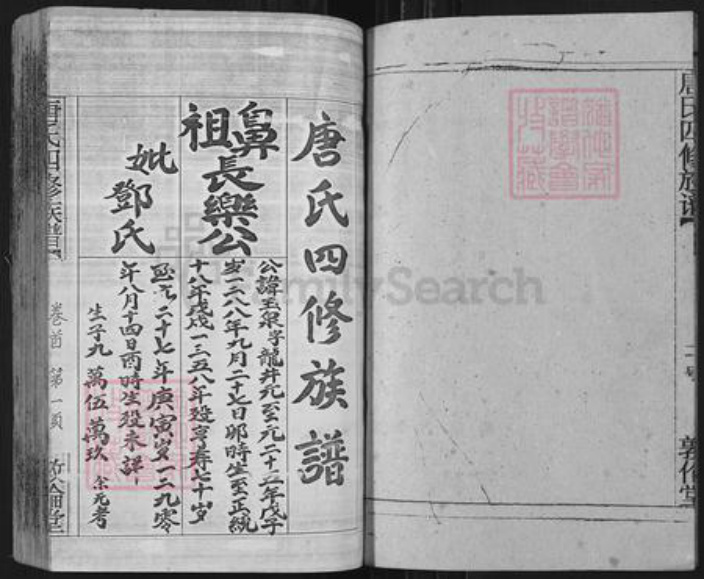 唐氏四修族譜
鼻祖長樂公
公諱玉泉字龍井元至元二十五年戊子
岁一二八八年九月二十七日卯時生至正統
十八年戊戌一三五八年殁享寿七十岁
妣鄧氏
至元二十七年庚寅岁一二九零
年八月十四日酉時生殁未詳
生子九 萬伍 萬玖 余无考
唐氏四修族譜
卷首 第一頁
唐氏四修族譜
敦倫堂
FamilySearch